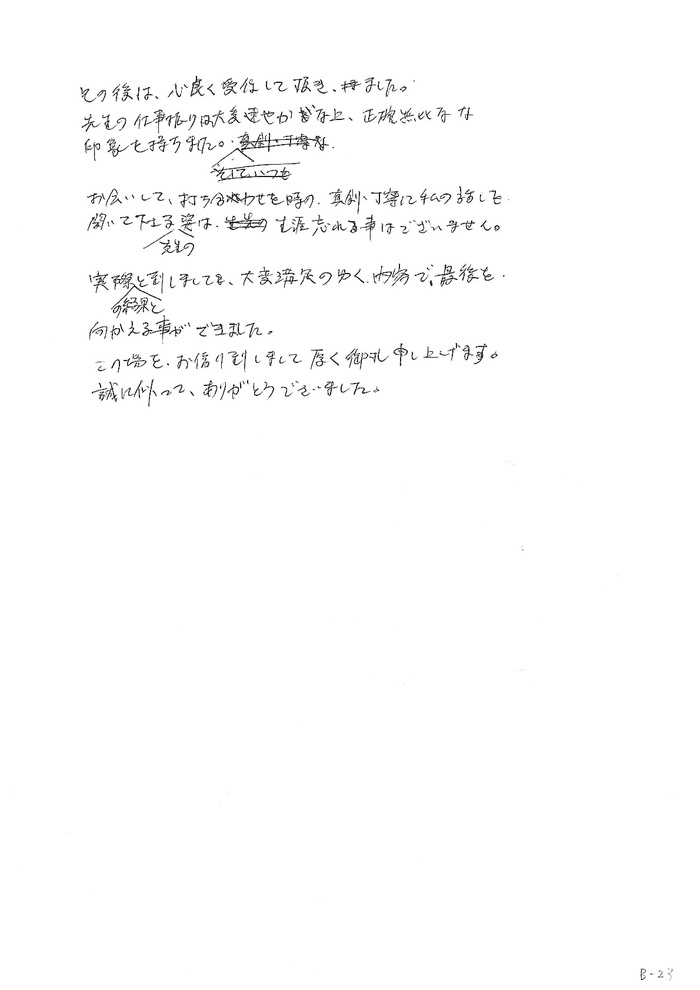 その後は、心良く受任して頂き、ました。
先生の仕事振りは大変速やかな上、正確無比なな
印象を持ちました。真剣・丁寧な
そして、いつも
お会いして、打ち合わせを時の、真剣・丁寧に私の話しを
聞いて下さる姿は、生涯忘れる事はございません。
先生の
実際と致しましても、大変満足のゆく、内容で、最後を
の結果と
向かえる事ができました。
この場を、お借り致しまして厚く御礼申し上げます。
誠に似って、ありがとうございました。
B-23